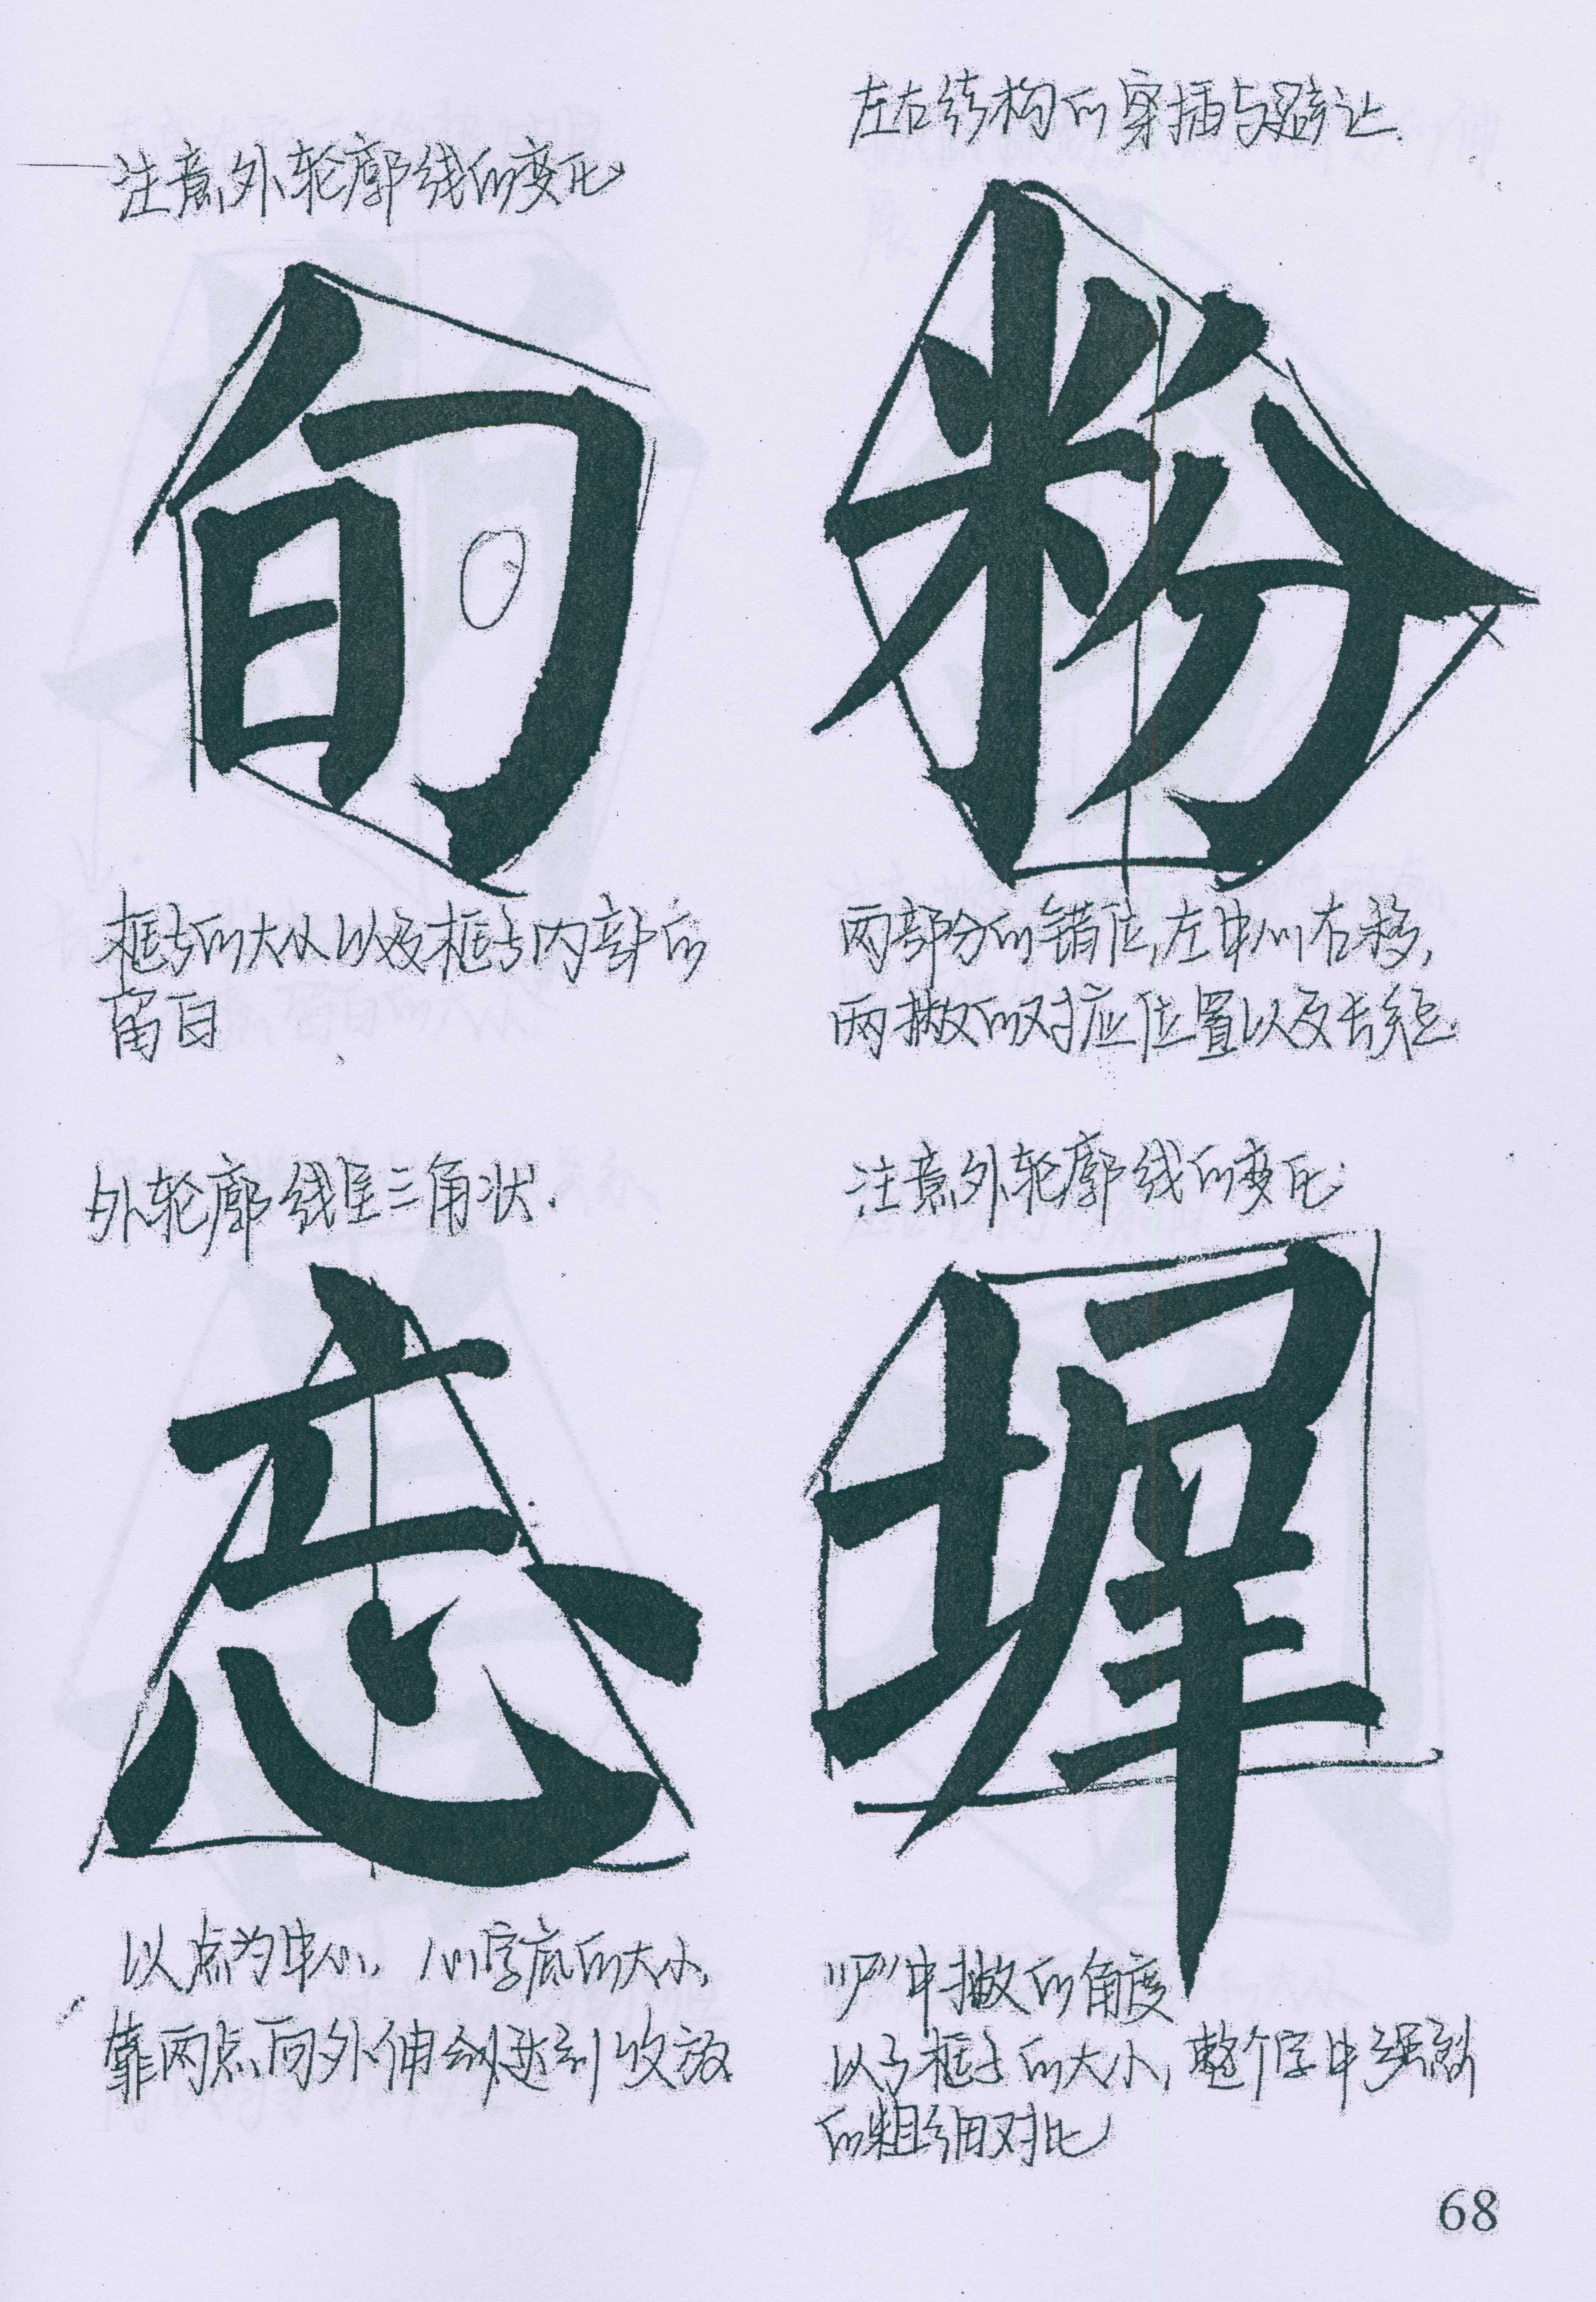 注意外轮廓线的变化
旬
框与的大小以及框与内部的
留白
左右结构的穿插与避让.
粉
两部分的错位,左中心右移,
两撇的对应位置以及长短.
外轮廓线呈三角状.
忘
以点为中心,心字底的大小,
靠两点向外伸缩达到收放
注意外轮廓线的变化
墀
"尸"中撇的角度
以与框子的大小,整个字中强烈
的粗细对比
68